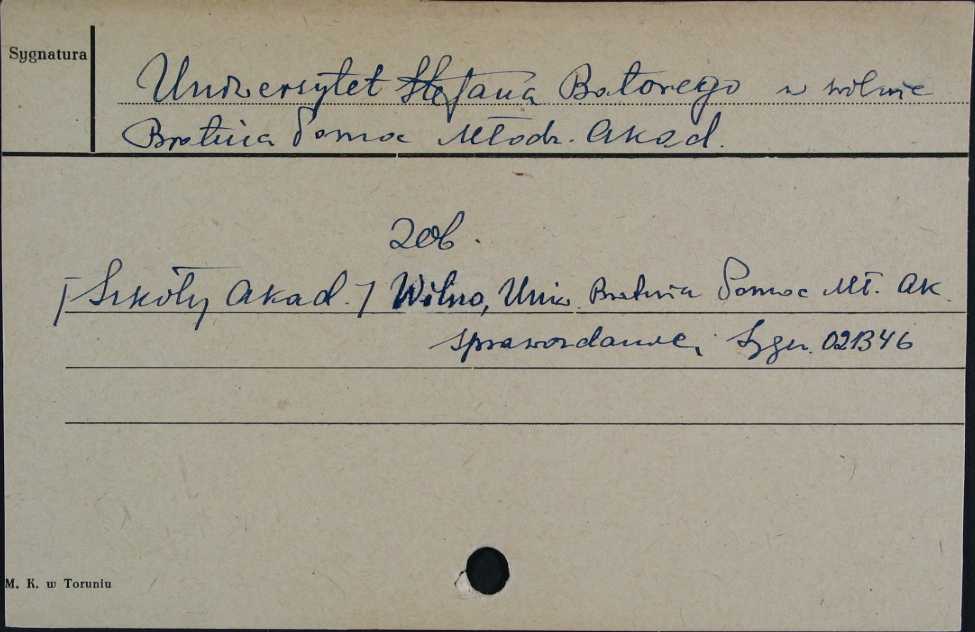 Sygnatura
Uniwersytet Stefana Batorego w Wilnie
Bratnia Pomoc Młodz. Akad.
zob.
[Szkoły Akad.] Wilno, Uniw. Bratnia Pomoc Mł. Ak.
Sprawozdanie, Sygn. 021346
M. K. w Toruniu